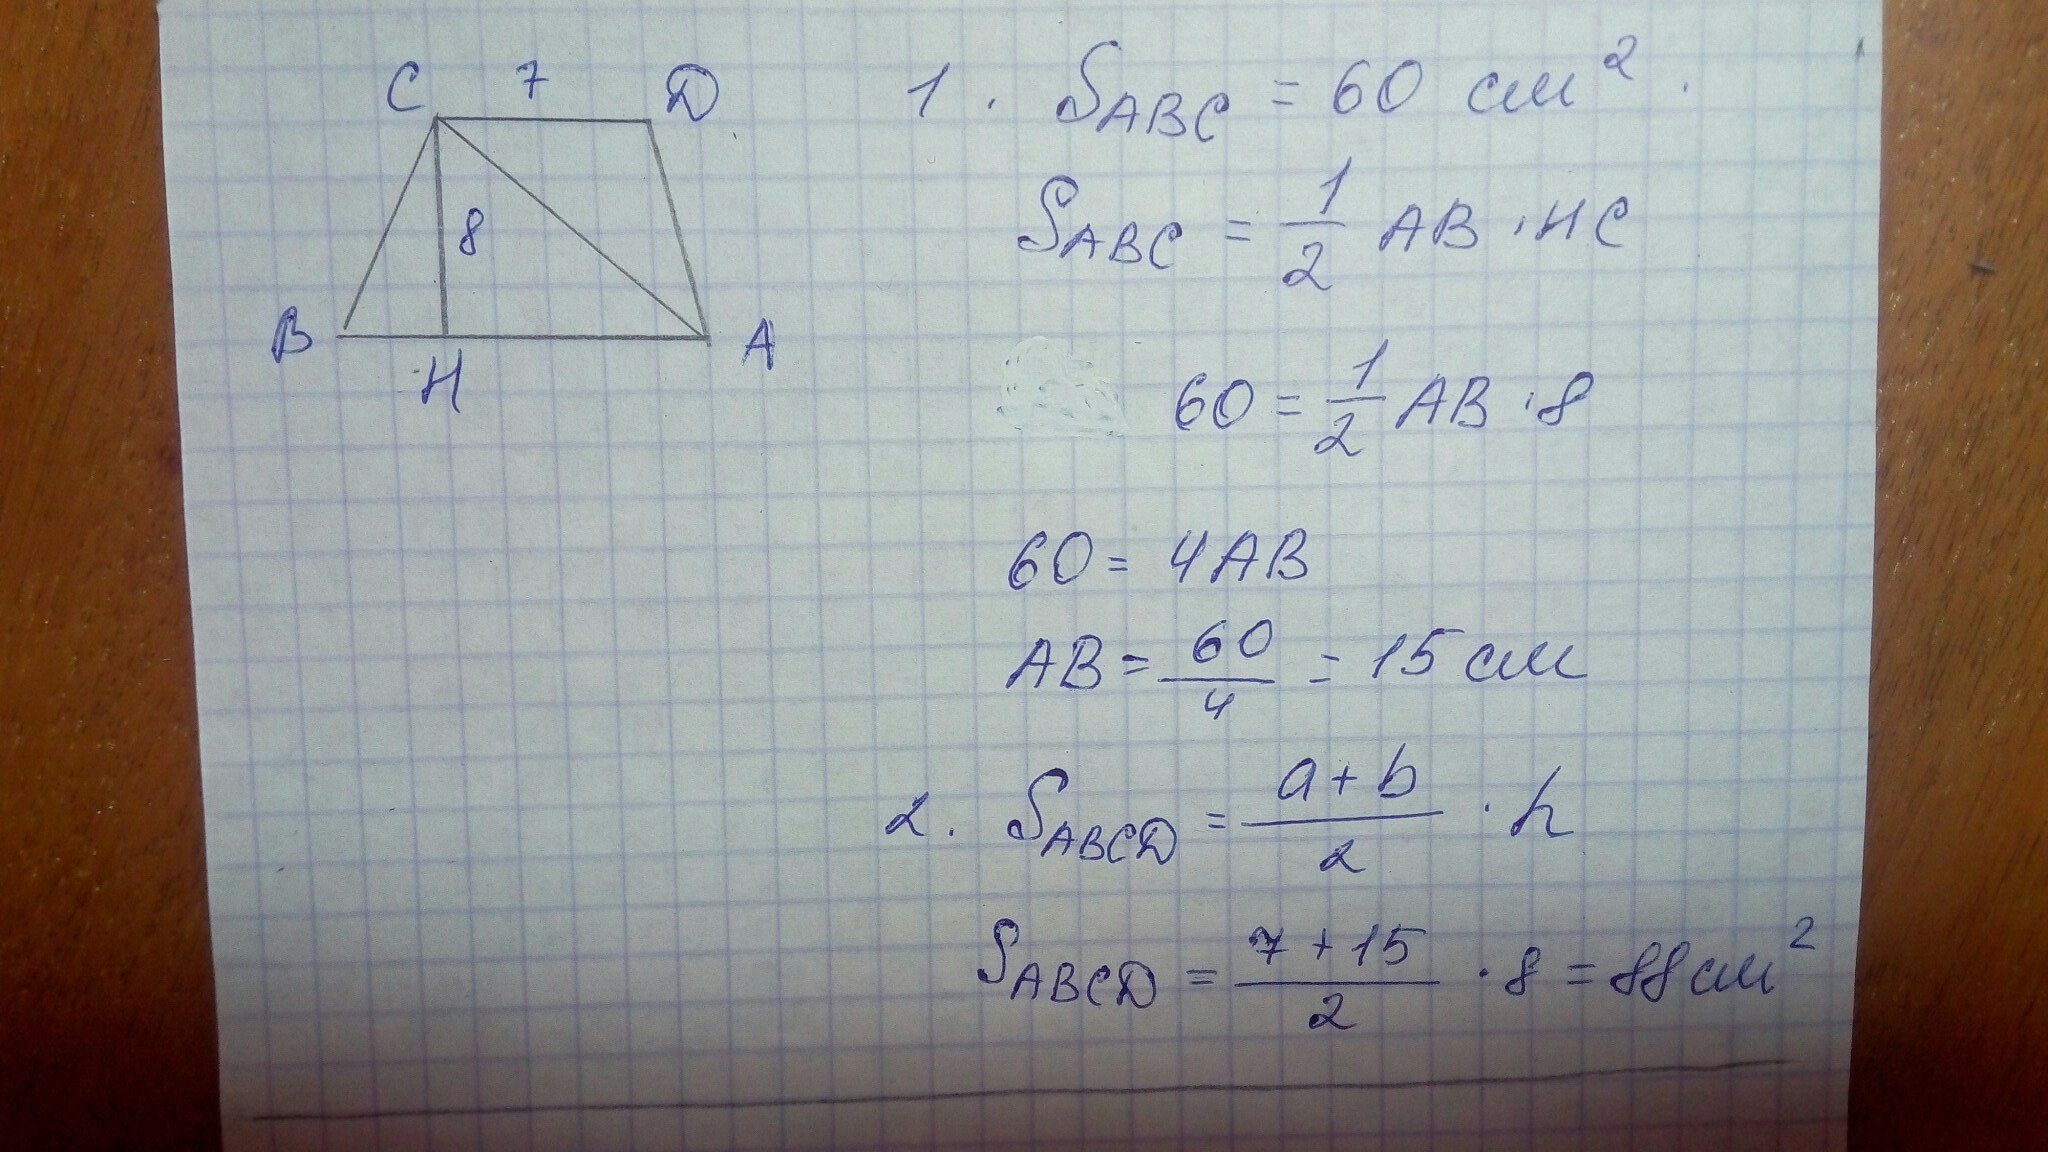 C 7 D
8
B H A
1. S_ABC = 60 см².
S_ABC = 1/2 AB · HC
60 = 1/2 AB · 8
60 = 4AB
AB = 60/4 = 15 см
2. S_ABCD = (a+b)/2 · h
S_ABCD = (7+15)/2 · 8 = 88 см²